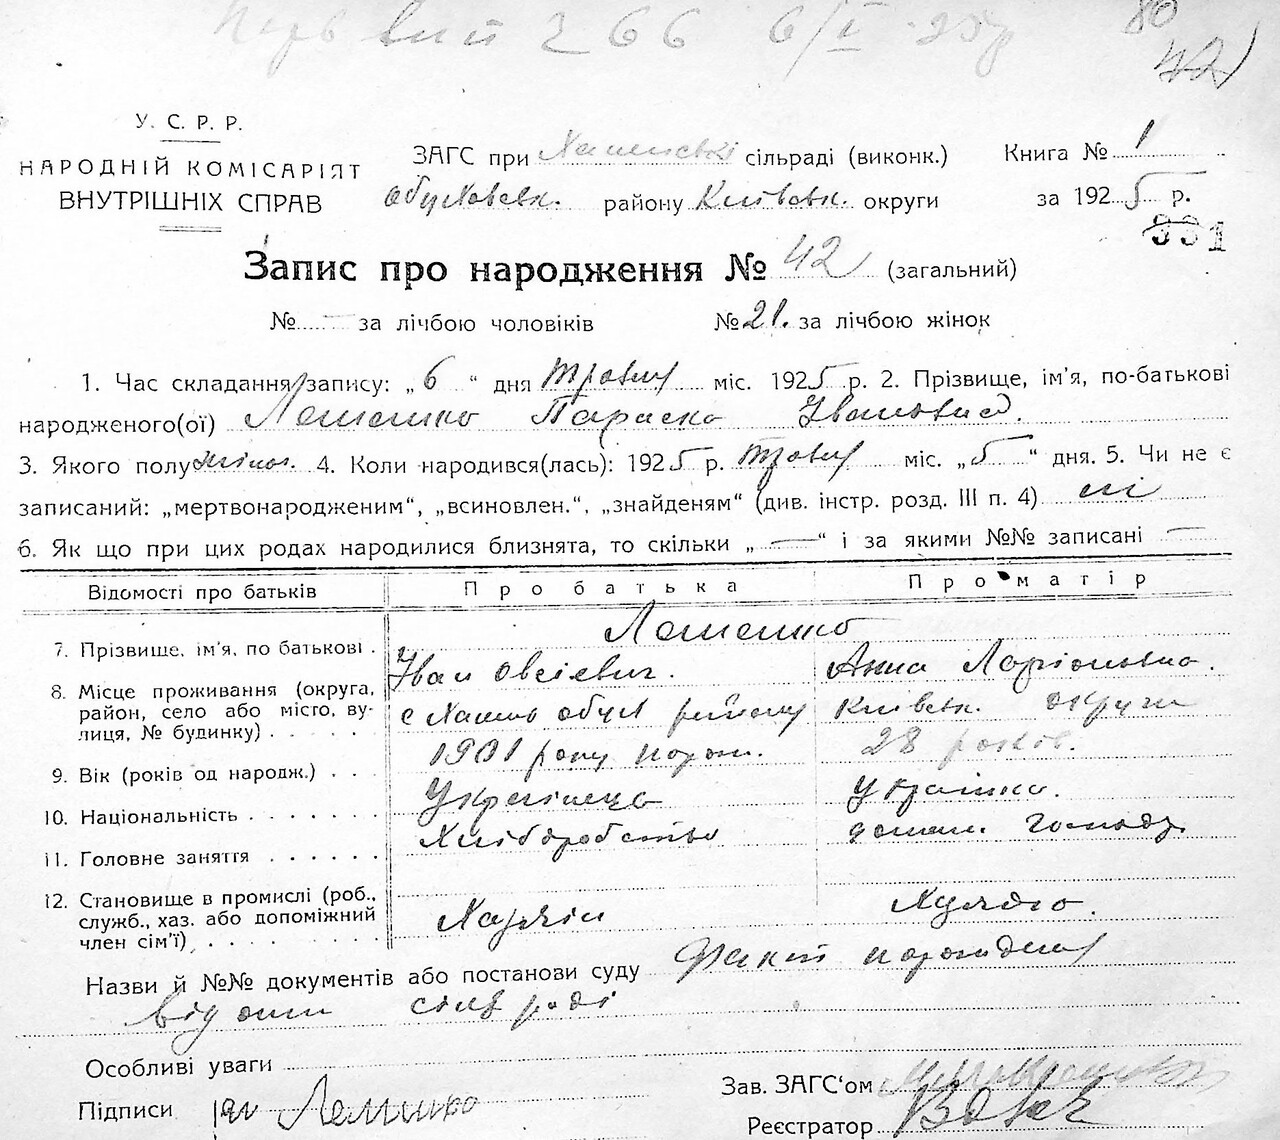 Первий 266 6/V-25р
80
42)
У. С. Р. Р.
НАРОДНІЙ КОМІСАРІЯТ
ВНУТРІШНІХ СПРАВ
ЗАГС при сільраді (виконк.)
Обуховськ. району Київськ. округи
Книга № 1
за 1925 р.
331
Запис про народження № 42 (загальний)
№ — за лічбою чоловіків № 21. за лічбою жінок
1. Час складання запису: „6“ дня травня міс. 1925 р. 2. Прізвище, ім'я, по-батькові
народженого(ої) Параска Івановна.
3. Якого полу жіноч. 4. Коли народився(лась): 1925 р. травня міс. „5“ дня. 5. Чи не є
записаний: „мертвонародженим“, „всиновлен.“, „знайденям“ (див. інстр. розд. III п. 4) ні
6. Як що при цих родах народилися близнята, то скільки „—“ і за якими №№ записані —
Відомості про батьків Про батька Про матір
7. Прізвище, ім'я, по батькові .
Іван Овсієвич. Анна Ларіоновна.
8. Місце проживання (округа, район, село або місто, вулиця, № будинку) . . . . .
с обух району Київськ. округи
9. Вік (років од народж.) . . . 1901 року пород. 28 років.
10. Національність . . . . . . . Українець Українка.
11. Головне заняття . . . . . . Хліборобство домаш. господ.
12. Становище в промислі (роб., служб., хаз. або допоміжний член сім'ї) . . . . . . . .
Хазяїн Хазяйка.
Назви й №№ документів або постанови суду Факт породження
відомий сільраді
Особливі уваги
Підписи
Зав. ЗАГС'ом
Реєстратор